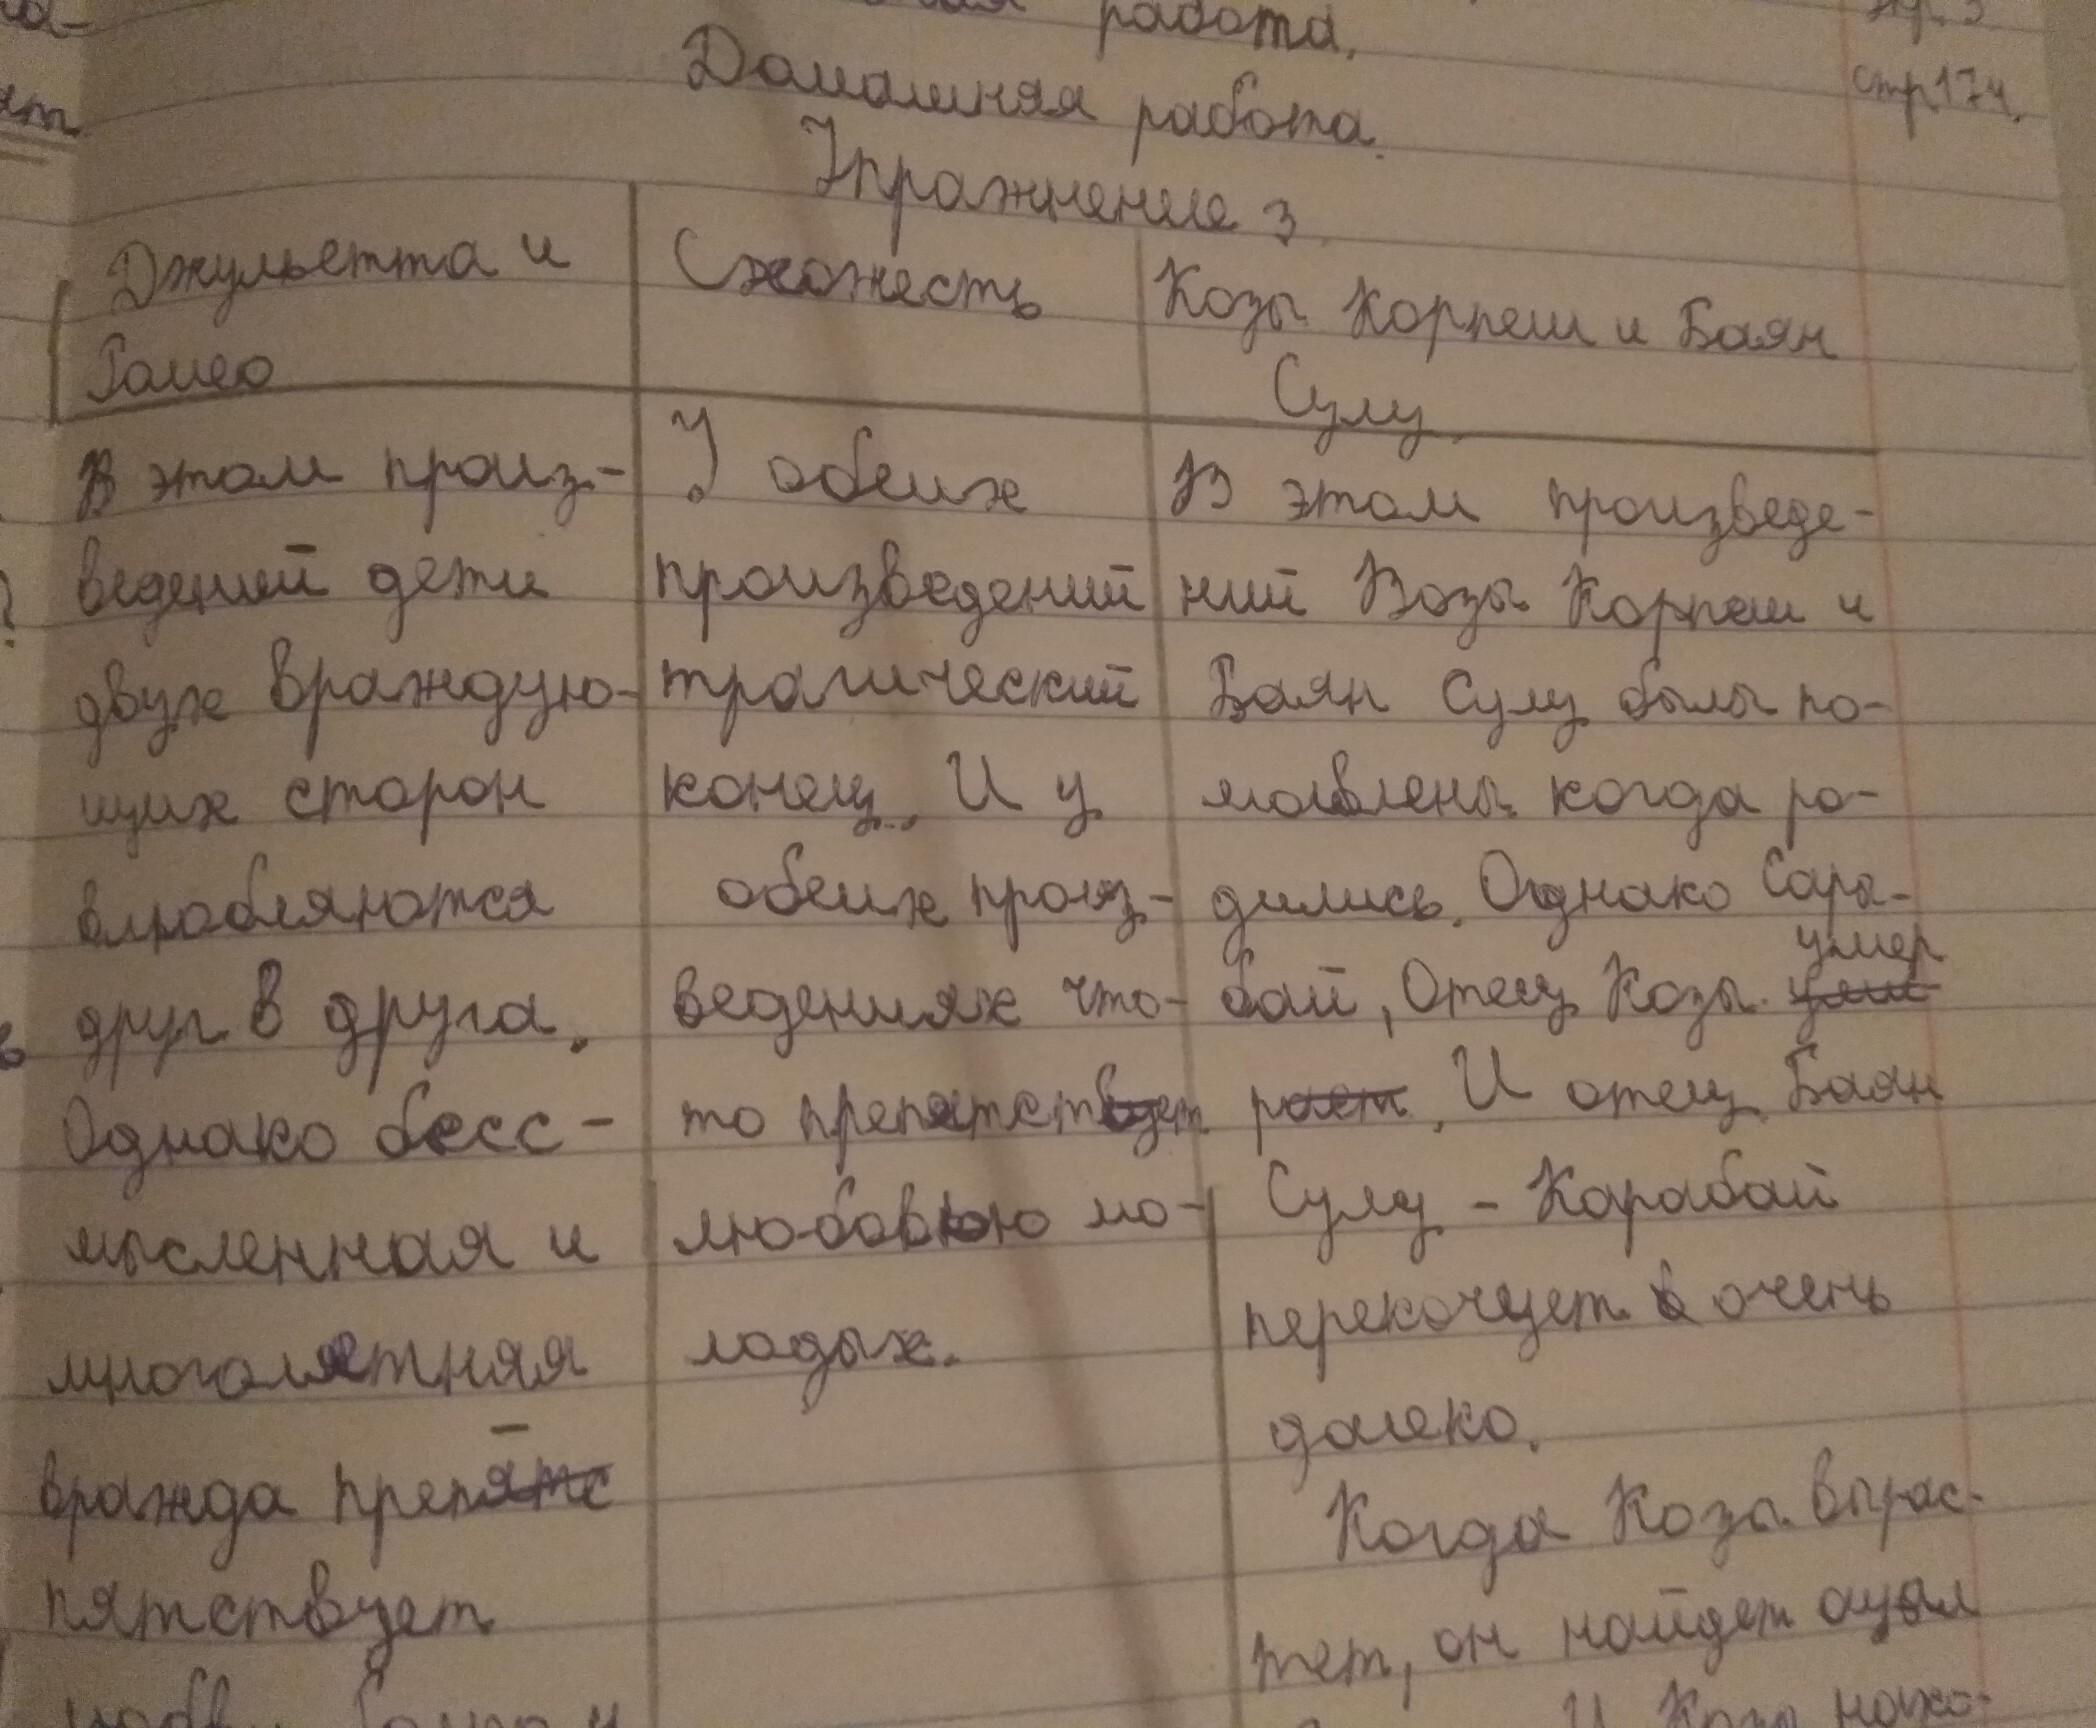 работа.
стр 174.
Домашняя работа.
Упражнение 3
Джульетта и
Ромео
В этом произ-
ведений дети
двух враждую-
щих сторон
влюбляются
друг в друга.
Однако бесс-
мысленная и
многолетняя
вражда преп
пятствует
Схожесть
У обеих
произведений
трагический
конец. И у
обеих произ-
ведениях что-
то препятствует
любовью мо-
лодых.
Козы Корпеш и Баян
Сулу
В этом произведе-
ний Козы Корпеш и
Баян Сулу былы по-
молвлены когда ро-
дились. Однако Сары-
бай, Отец Козы умер
. И отец Баян
Сулу - Карабай
перекочует в очень
далеко.
Когда Козы вырас-
тет, он найдет ауыл
И Козы